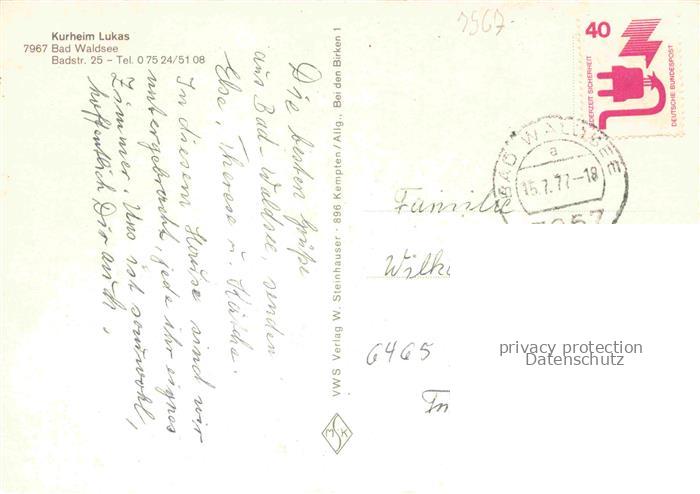 Kurheim Lukas
7967 Bad Waldsee
Badstr. 25 – Tel. 0 75 24/51 08
7967
Die besten Grüße
aus Bad-Waldsee, senden
Else, Therese u. Käthe.
In diesem Hause sind wir
untergebracht, jede ihr eignes
Zimmer. Uns ist sauwohl,
hoffentlich Dir auch,
VWS Verlag W. Steinhauser · 896 Kempten/Allg., Bei den Birken 1
MSK
40
JEDERZEIT SICHERHEIT
DEUTSCHE BUNDESPOST
BAD WALDSEE
a
15.7.77-18
Familie
Wilk
6465
privacy protection
Datenschutz